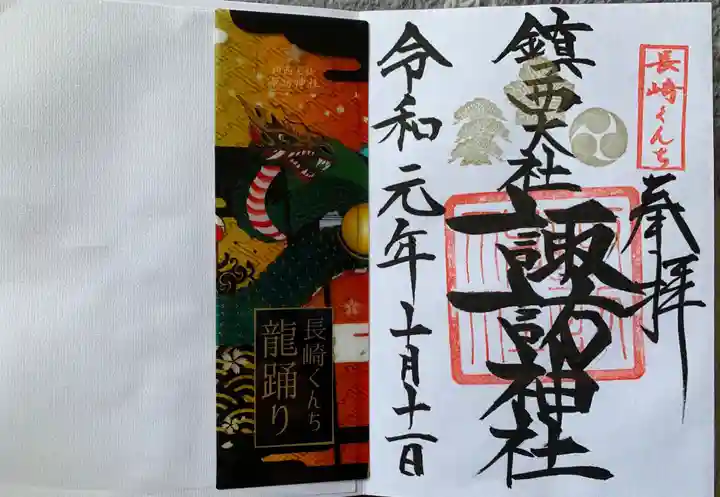 長崎くんち
奉拝
鎮西大社
諏訪神社
令和元年十月十一日
鎮西大社
諏訪神社
長崎くんち
龍踊り